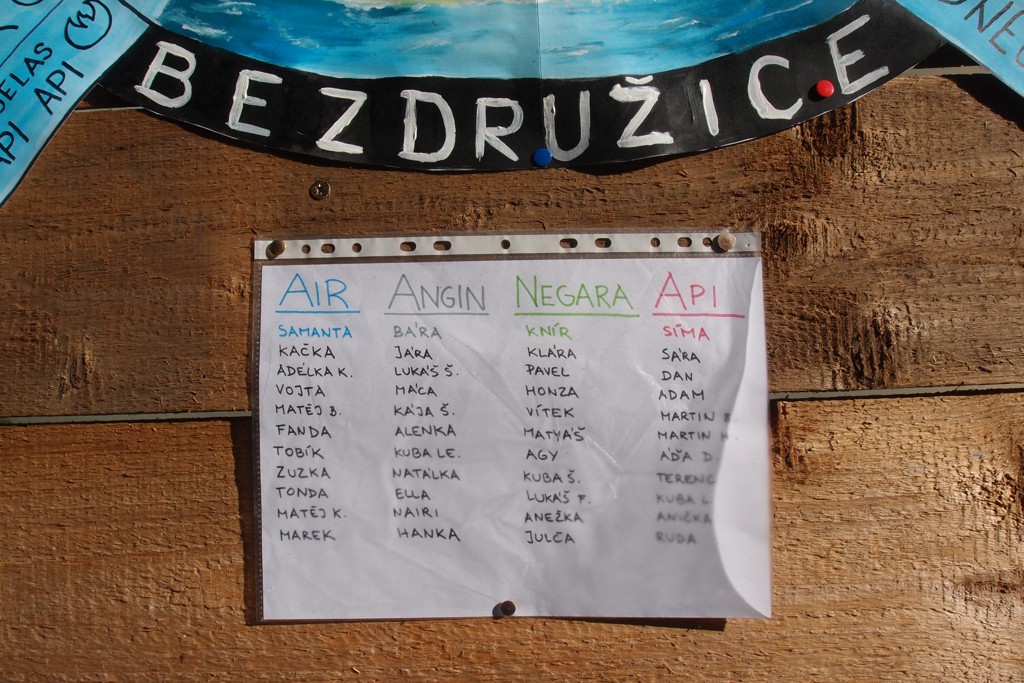 API
API
BEZDRUŽICE
AIR ANGIN NEGARA API
SAMANTA BÁRA KNÍR SÍMA
KAČKA JÁRA KLÁRA SÁRA
ADÉLKA K. LUKÁŠ Š. PAVEL DAN
VOJTA MÁCA HONZA ADAM
MATĚJ B. KÁJA Š. VÍTEK MARTIN
FANDA ALENKA MATYÁŠ MARTIN
TOBÍK KUBA LE. AGY ÁĎA D.
ZUZKA NATÁLKA KUBA Š. TERENC
TONDA ELLA LUKÁŠ F. KUBA L
MATĚJ K. NAIRI ANEŽKA ANIČKA
MAREK HANKA JULČA RUDA